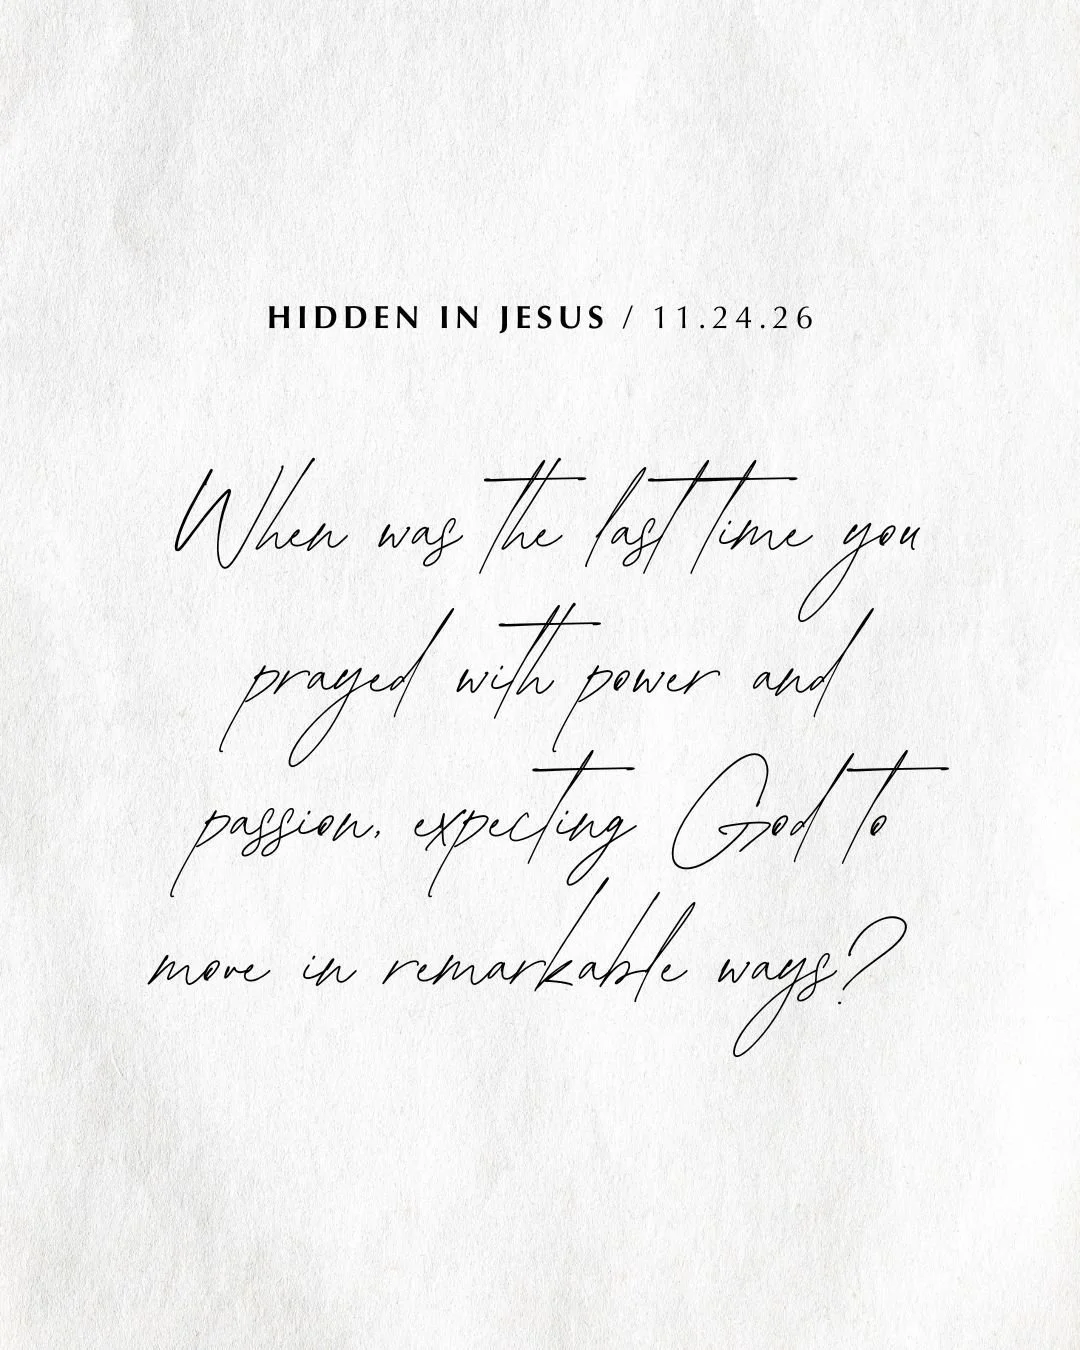 HIDDEN IN JESUS / 11.24.26
When was the last time you
prayed with power and
passion, expecting God to
move in remarkable ways?